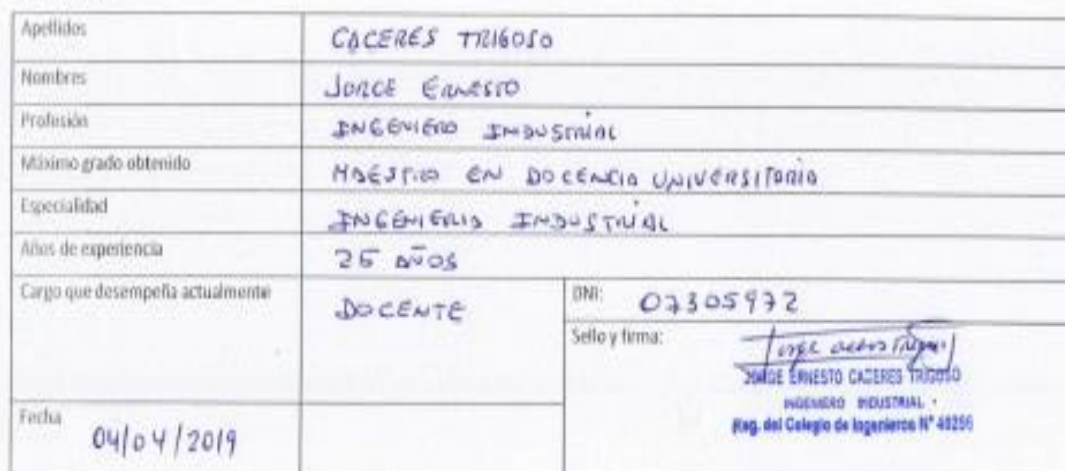 Apellidos
CACERES TRIGOSO
Nombres
JORGE ERNESTO
Profesión
INGENIERO INDUSTRIAL
Máximo grado obtenido
MAESTRO EN DOCENCIA UNIVERSITARIA
Especialidad
INGENIERIA INDUSTRIAL
Años de experiencia
25 AÑOS
Cargo que desempeña actualmente
DOCENTE
DNI: 07305972
Sello y firma:
JORGE ERNESTO CACERES TRIGOSO
INGENIERO INDUSTRIAL
Reg. del Colegio de Ingenieros N° 40256
Fecha
04/04/2019